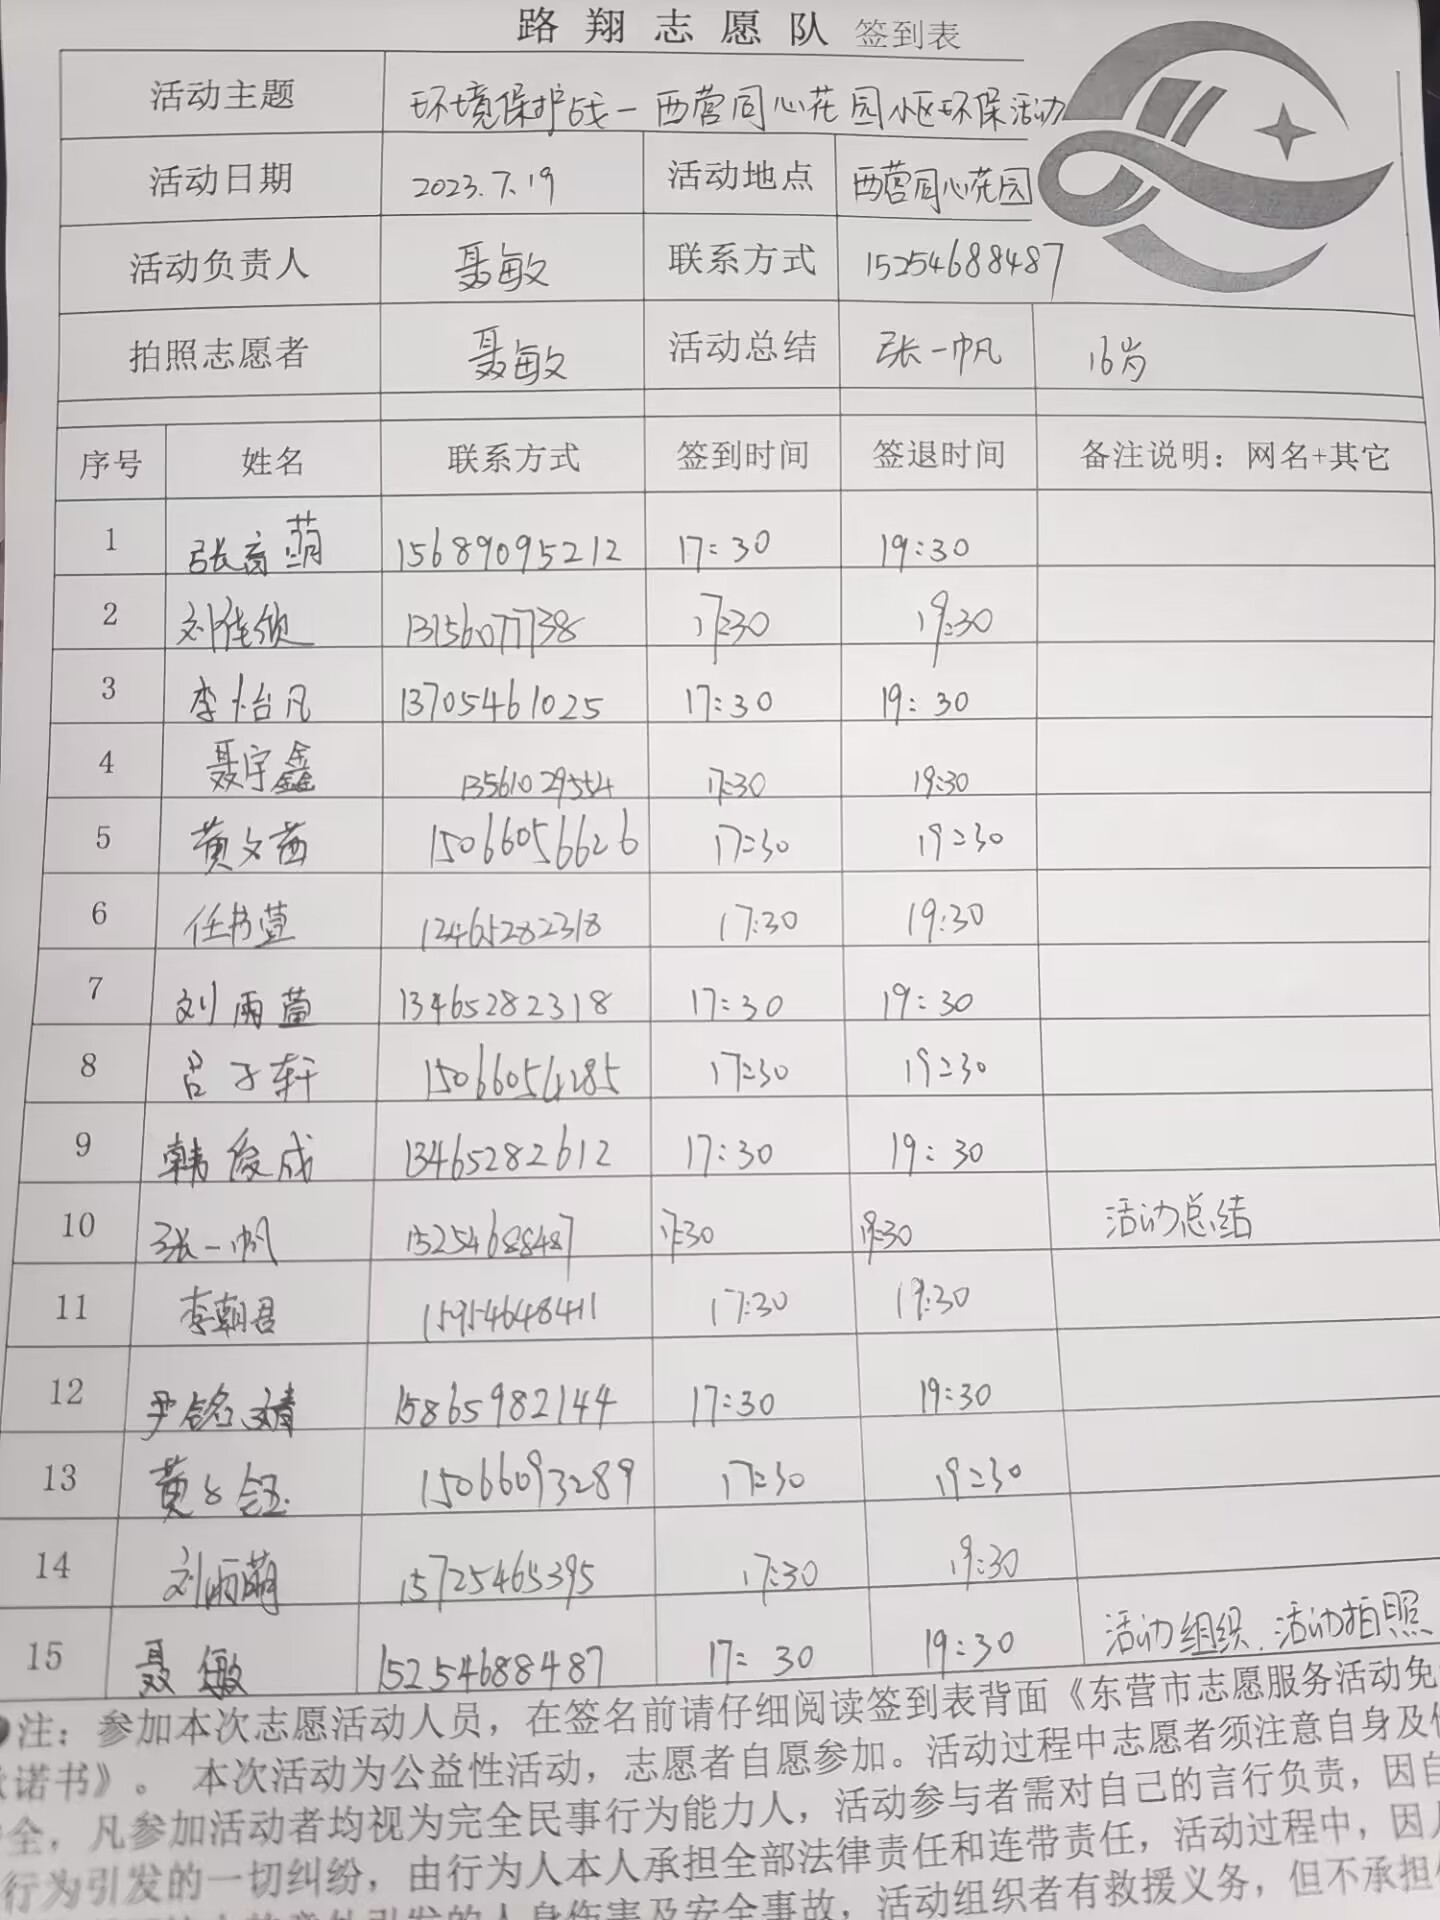 路翔志愿队 签到表
活动主题 环境保护战一西营同心花园小区环保活动
活动日期 2023.7.19 活动地点 西营同心花园
活动负责人 聂敏 联系方式 15254688487
拍照志愿者 聂敏 活动总结 张一帆 16岁
序号 姓名 联系方式 签到时间 签退时间 备注说明：网名+其它
1 张育萌 15689095212 17:30 19:30
2 刘佳欣 13156077738 17:30 19:30
3 李怡凡 13705461025 17:30 19:30
4 聂宇鑫 13561029554 17:30 19:30
5 黄文茜 15066056626 17:30 19:30
6 任书萱 13465282318 17:30 19:30
7 刘雨萱 13465282318 17:30 19:30
8 吕子轩 15066054285 17:30 19:30
9 韩俊成 13465282612 17:30 19:30
10 张一帆 15254688487 17:30 19:30 活动总结
11 李朝君 15954648411 17:30 19:30
12 尹铭婧 15865982144 17:30 19:30
13 黄 钰 15066093289 17:30 19:30
14 刘雨萌 15725465395 17:30 19:30
15 聂敏 15254688487 17:30 19:30 活动组织、活动拍照
注：参加本次志愿活动人员，在签名前请仔细阅读签到表背面《东营市志愿服务活动免
诺书》。 本次活动为公益性活动，志愿者自愿参加。活动过程中志愿者须注意自身及
全，凡参加活动者均视为完全民事行为能力人，活动参与者需对自己的言行负责，因自
行为引发的一切纠纷，由行为人本人承担全部法律责任和连带责任，活动过程中，因
引发的人身伤害及安全事故，活动组织者有救援义务，但不承担